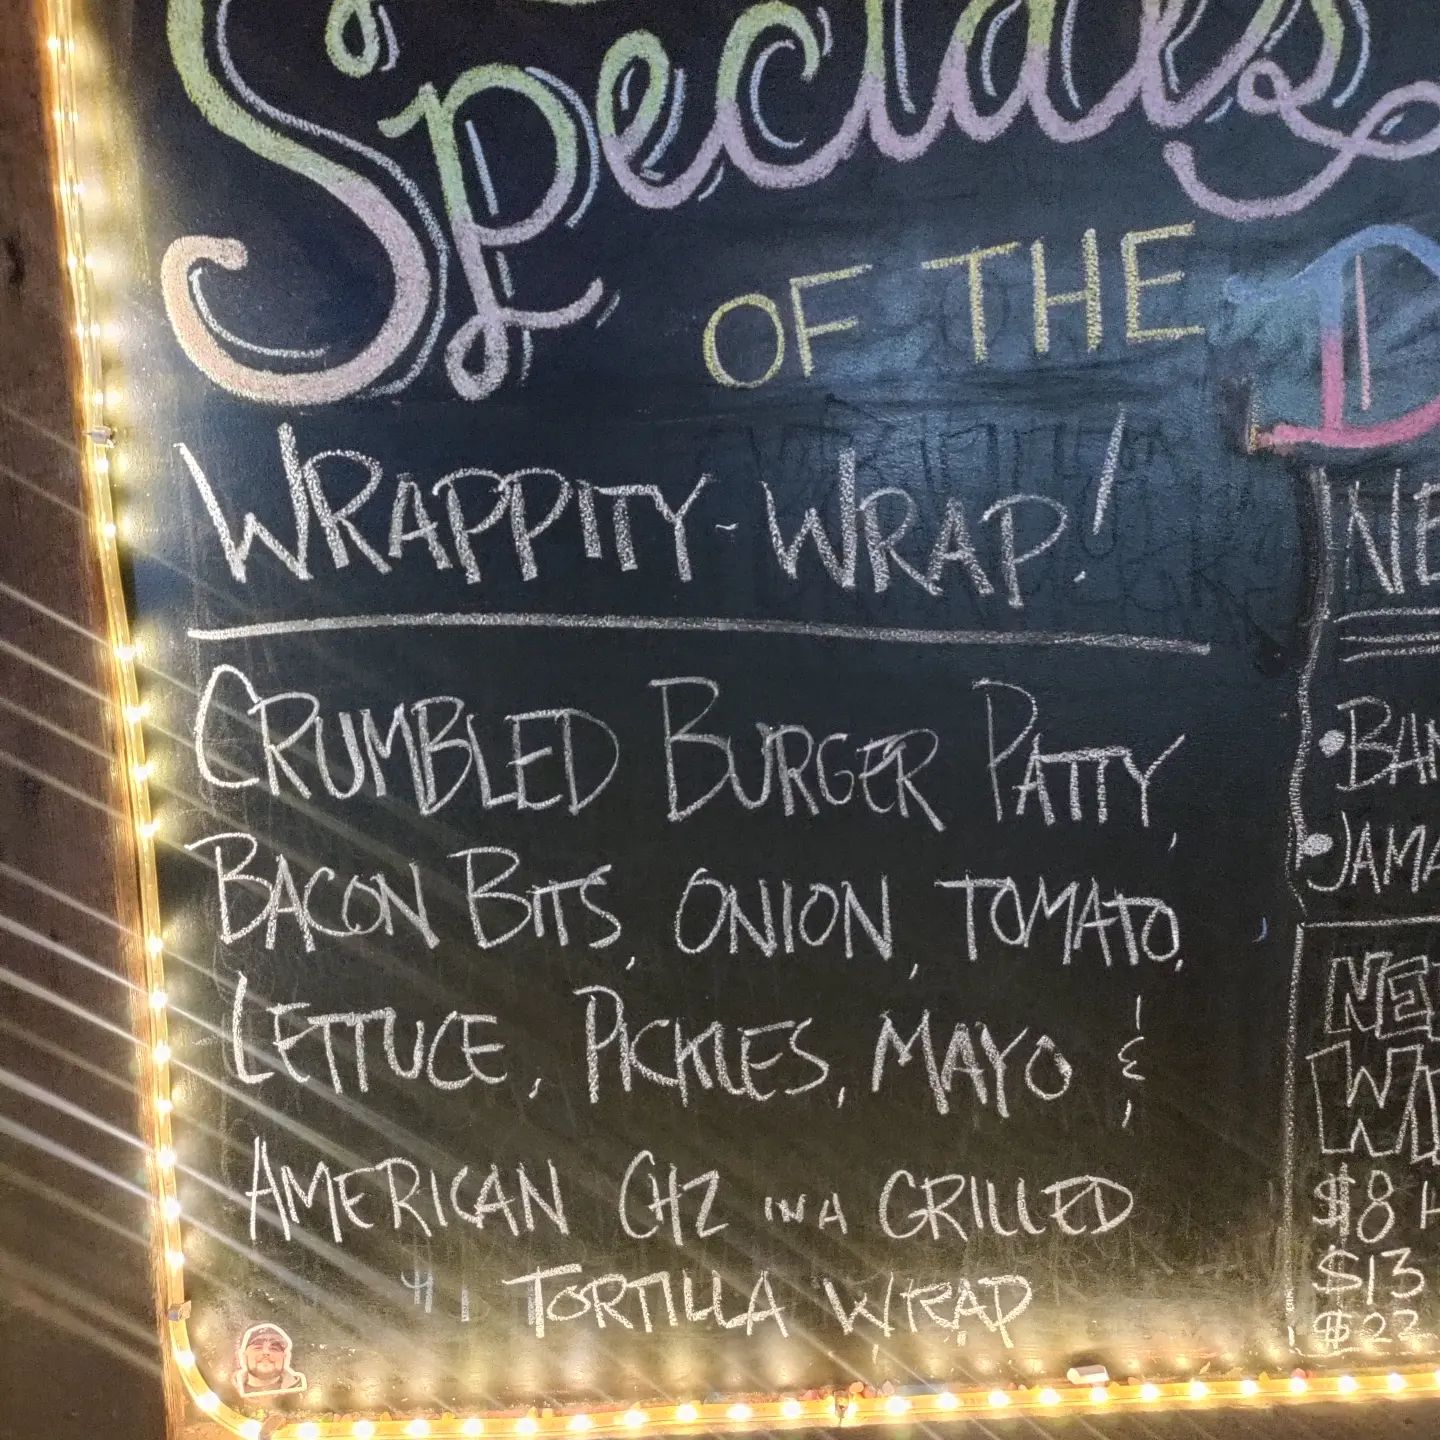 Specials
OF THE
WRAPPITY-WRAP!
CRUMBLED BURGER PATTY,
BACON BITS, ONION, TOMATO,
LETTUCE, PICKLES, MAYO &
AMERICAN CHZ IN A GRILLED
TORTILLA WRAP
$8
$13
$22